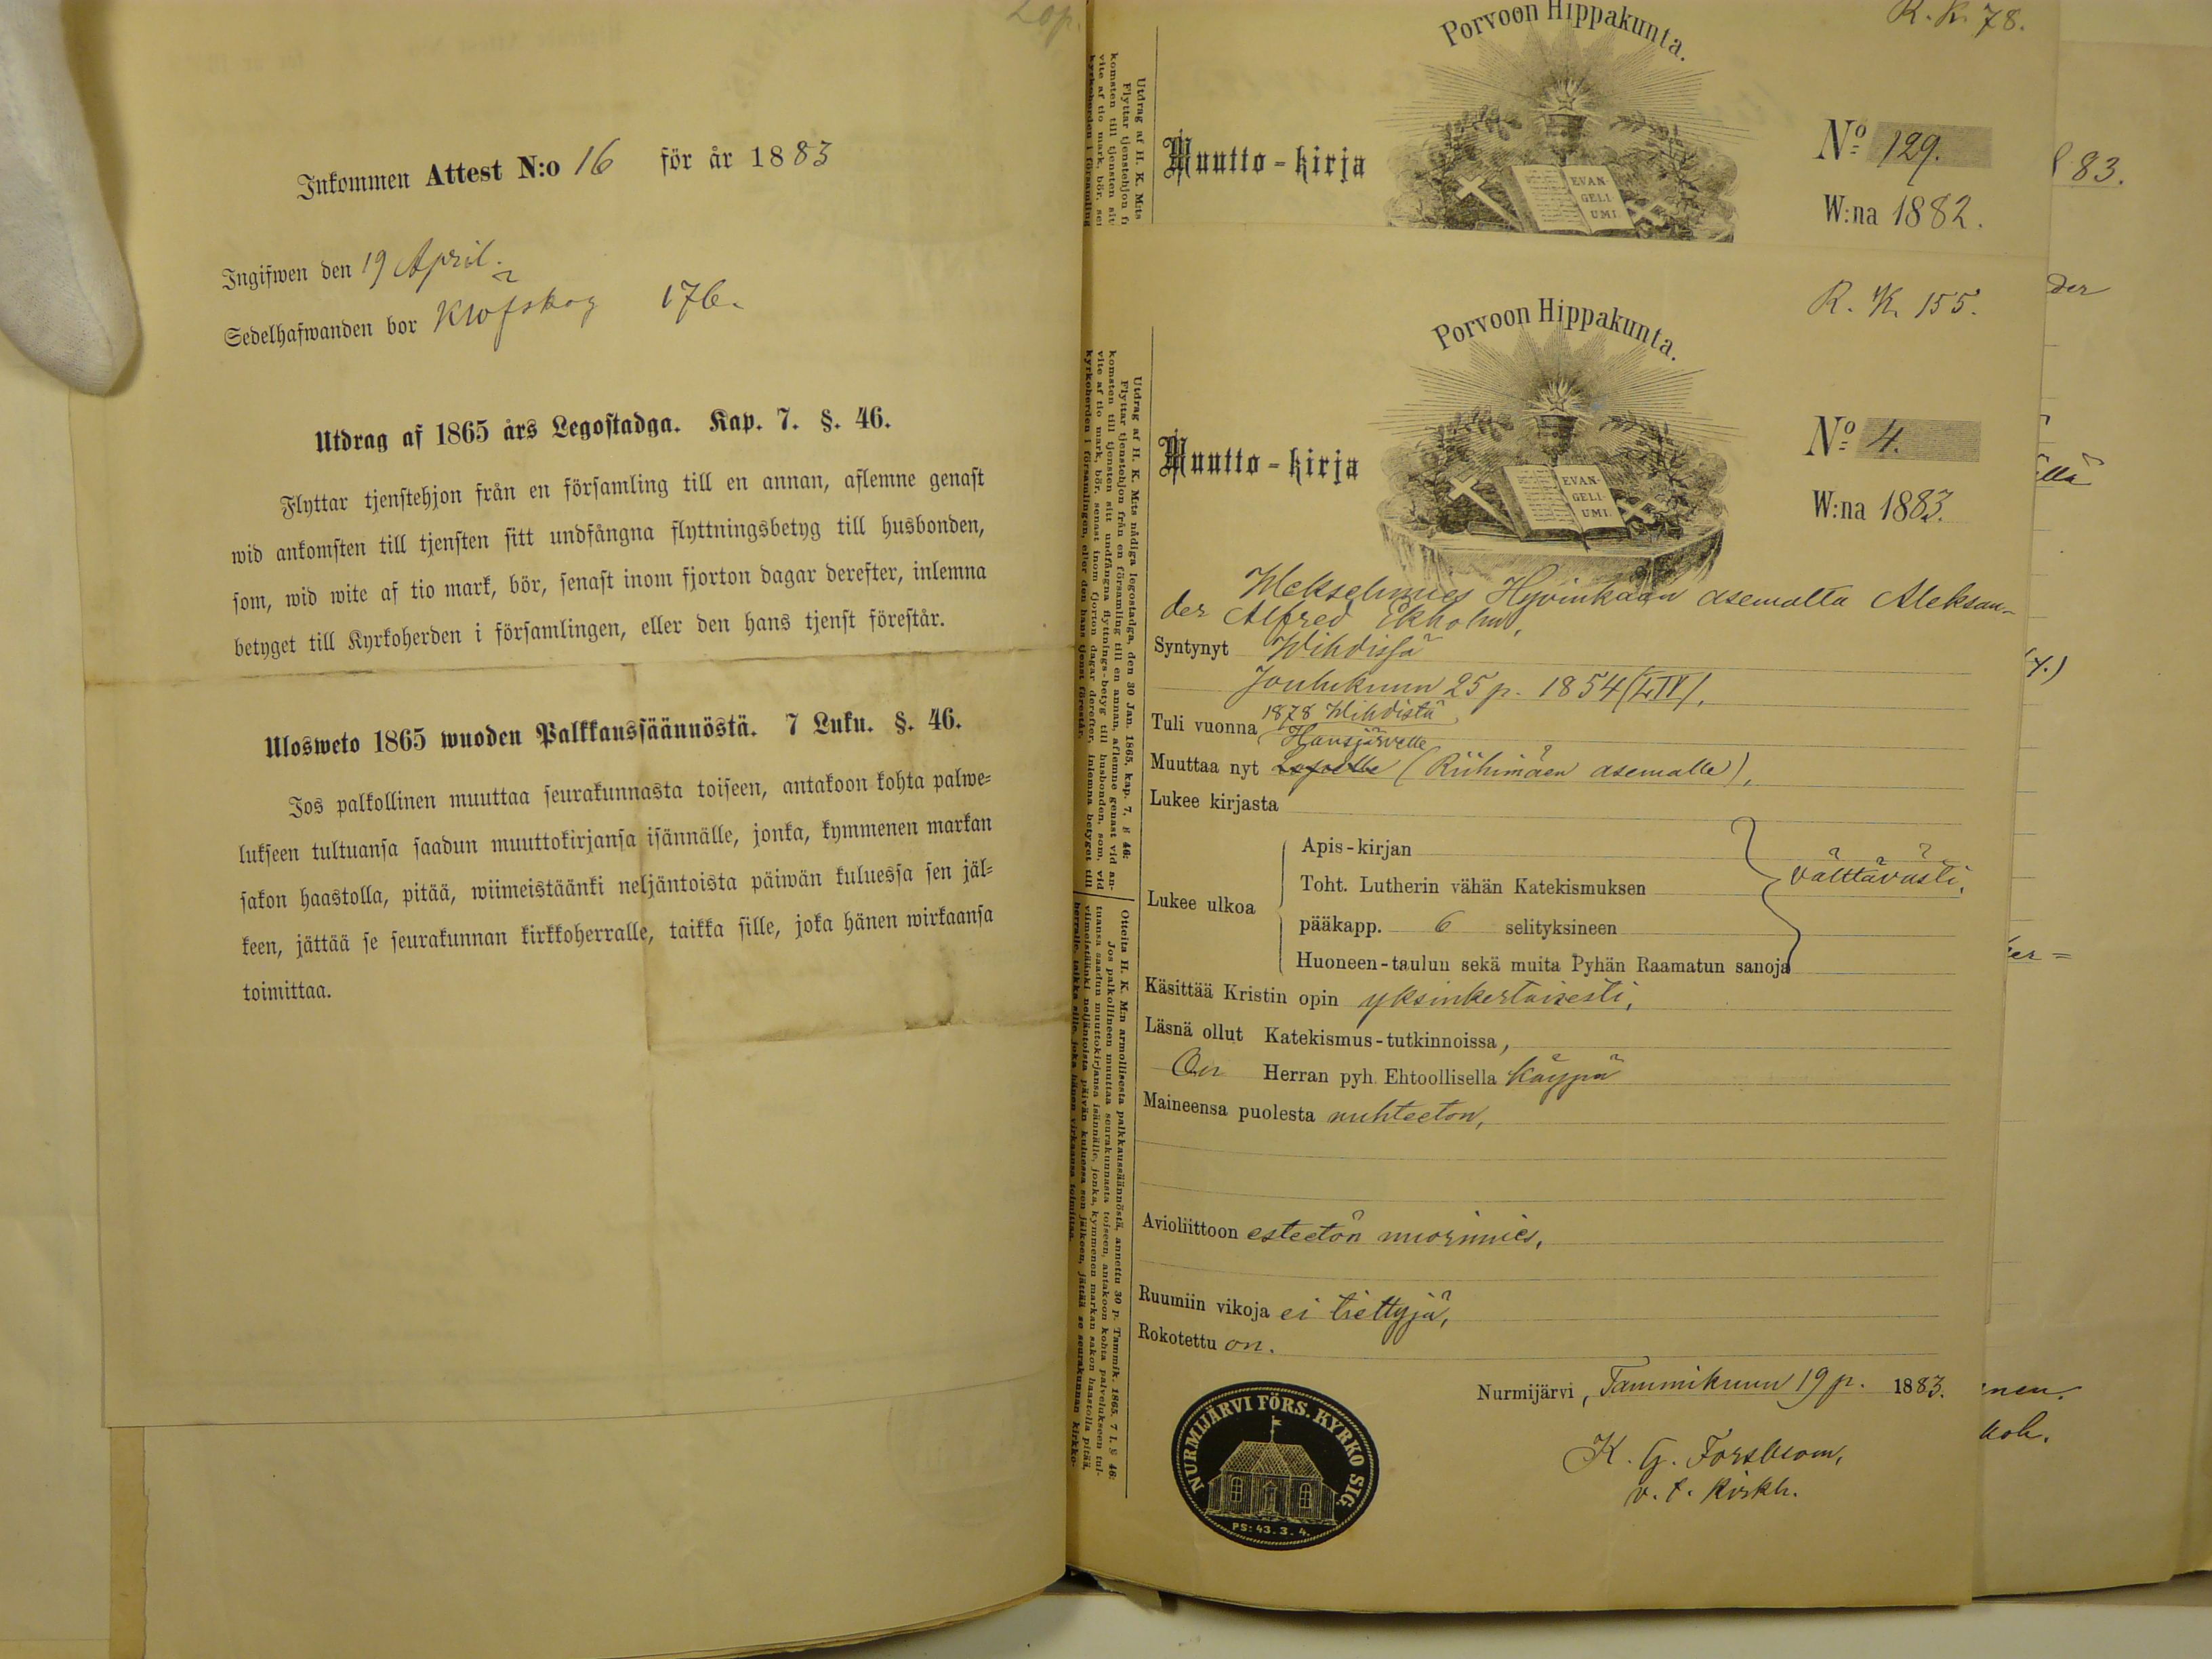 Inkommen Attest N:o 16 för år 1883
Ingifwen den 19 April.
Sedelhafwanden bor Klöfskog 176.
Utdrag af 1865 års Legostadga. Kap. 7. §. 46.
Flyttar tjenstehjon från en församling till en annan, aflemne genast
wid ankomsten till tjensten sitt undfångna flyttningsbetyg till husbonden,
som, wid wite af tio mark, bör, senast inom fjorton dagar derefter, inlemna
betyget till Kyrkoherden i församlingen, eller den hans tjenst förestår.
Ulosweto 1865 wuoden Palkkanssäännöstä. 7 Luku. §. 46.
Jos palkollinen muuttaa seurakunnasta toiseen, antakoon kohta palwe=
lukseen tultuansa saadun muuttokirjansa isännälle, jonka, kymmenen markan
sakon haastolla, pitää, wiimeistäänki neljäntoista päiwän kuluessa sen jäl=
keen, jättää se seurakunnan kirkkoherralle, taikka sille, joka hänen wirkaansa
toimittaa.
R. K. 78.
Porvoon Hippakunta.
Muutto-kirja
EVAN-
GELI-
UMI.
No 129.
W:na 1882.
83.
der
R. K. 155.
Porvoon Hippakunta.
Muutto-kirja
EVAN-
GELI-
UMI.
No 4.
W:na 1883.
Utdrag af H. K. M:ts nådiga legostadga, den 30 Jan. 1865, kap. 7, § 46:
Flyttar tjenstehjon från en församling till en annan, aflemne genast vid an-
komsten till tjensten sitt undfångna flyttnings-betyg till husbonden, som, vid
vite af tio mark, bör, senast inom fjorton dagar derefter, inlemna betyget till
kyrkoherden i församlingen, eller den hans tjenst förestår.
Otteita H. K. M:n armollisesta palkkaussäännöstä, annettu 30 p. Tammik. 1865, 7 l. § 46:
Jos palkollineen muuttaa seurakunnasta toiseen, antakoon kohta palvelukseen tul-
tuansa saadun muuttokirjansa isännälle, jonka, kymmenen markan sakon haastolla pitää,
viimeistäänki neljäntoista päivän kuluessa sen jälkeen, jättää se seurakunnan kirkko-
herralle, taikka sille, joka hänen virkaansa toimittaa.
Wekselimies Hyvinkään asemalta Aleksan-
der Alfred Ekholm,
Syntynyt Wihdissä
Joulukuun 25 p. 1854 (LIV).
Tuli vuonna 1878 Wihdistä,
Hausjärvelle
Muuttaa nyt (Riihimäen asemalle),
Lukee kirjasta
Lukee ulkoa
Apis-kirjan
Toht. Lutherin vähän Katekismuksen
pääkapp. 6 selityksineen
Huoneen-taulun sekä muita Pyhän Raamatun sanoja
välttävästi,
Käsittää Kristin opin yksinkertaisesti,
Läsnä ollut Katekismus-tutkinnoissa,
On Herran pyh. Ehtoollisella käypä
Maineensa puolesta nuhteeton,
Avioliittoon esteetön nuorimies,
Ruumiin vikoja ei tiettyjä,
Rokotettu on.
Nurmijärvi, Tammikuun 19 p. 1883.
K. G. Forsblom,
v. t. kirkh.
NURMIJÄRVI FÖRS. KYRKO SIG.
PS: 43. 3. 4.